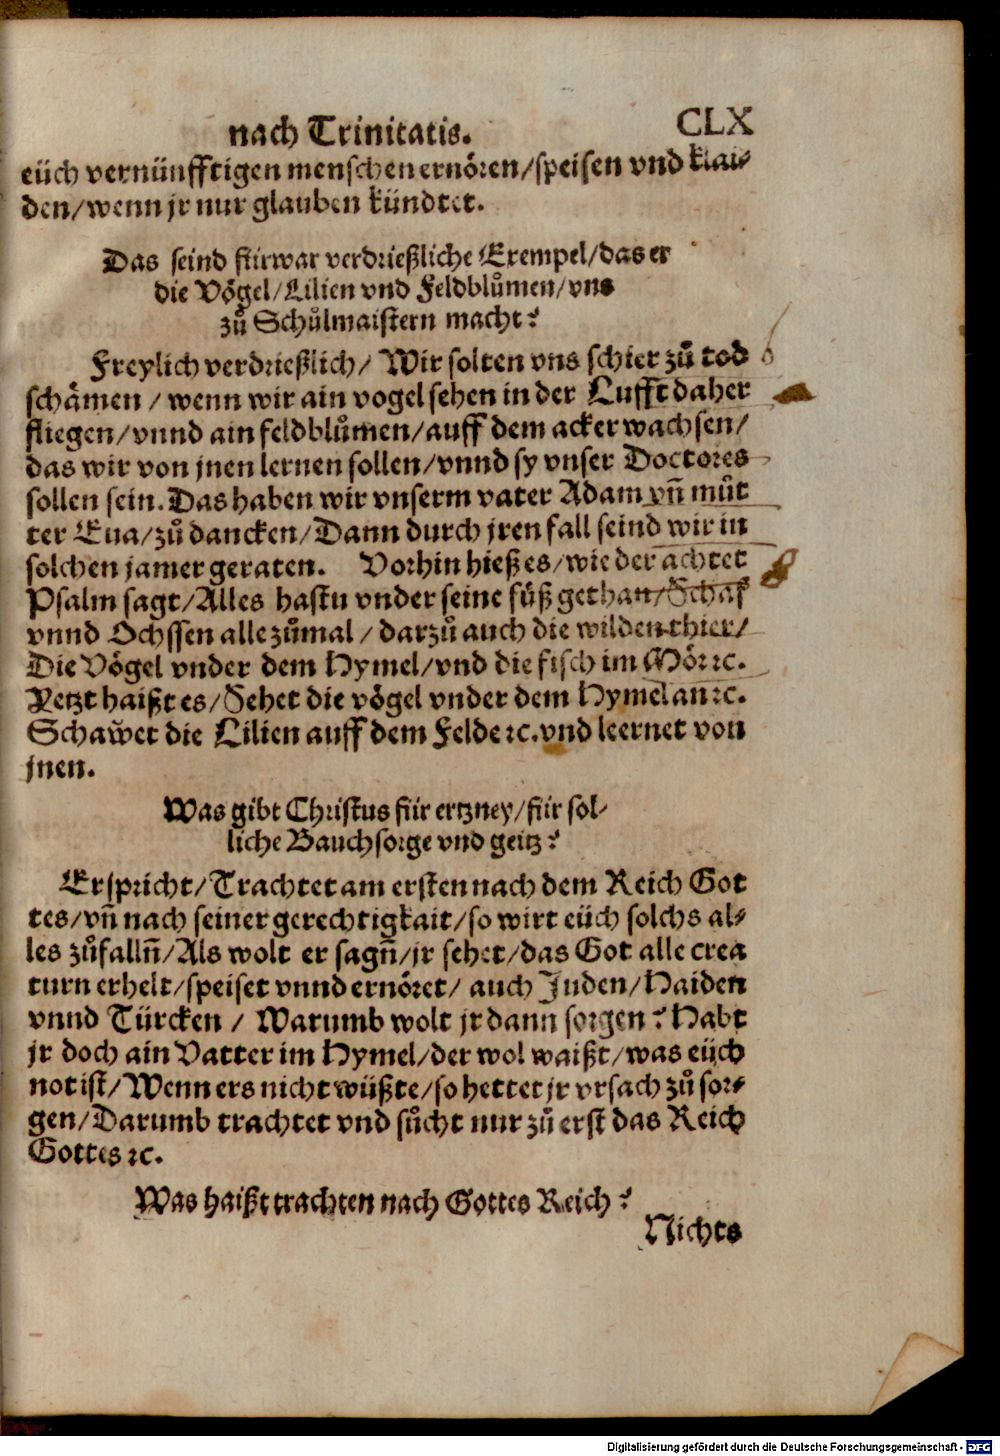 nach Trinitatis. CLX
eüch vernünfftigen menschen ernören/speisen vnd klai⸗
den/wenn jr nur glauben kündtet.
Das seind fürwar verdrießliche Exempel/das er
die Vögel/Lilien vnd Feldblůmen/vns
zů Schůlmaistern macht?
Freylich verdrießlich/ Wir solten vns schier zů tod
schämen / wenn wir ain vogel sehen in der Lufft daher
fliegen/vnnd ain feldblůmen/auff dem acker wachsen/
das wir von jnen lernen sollen/vnnd sy vnser Doctores
sollen sein. Das haben wir vnserm vater Adam vn̄ můt
ter Eua/zů dancken/Dann durch jren fall seind wir in
solchen jamer geraten. Vorhin hieß es/wie der achtet
Psalm sagt/Alles hastu vnder seine füß gethan/Schaf
vnnd Ochssen alle zůmal / darzů auch die wilden thier/
Die Vögel vnder dem Hymel/vnd die fisch im Mör ꝛc.
Yetzt haißt es/Sehet die vögel vnder dem Hymel an ꝛc.
Schawet die Lilien auff dem Felde ꝛc. vnd leernet von
jnen.
Was gibt Christus für ertzney/für sol⸗
liche Bauchsorge vnd geitz?
Er spricht/Trachtet am ersten nach dem Reich Got
tes/vn̄ nach seiner gerechtigkait/so wirt eüch solchs al⸗
les zůfalln̄/Als wolt er sagn̄/jr sehet/das Got alle crea
turn erhelt/speiset vnnd ernöret/ auch Juden/Haiden
vnnd Türcken / Warumb wolt jr dann sorgen? Habt
jr doch ain Vatter im Hymel/der wol waißt/was eüch
not ist/Wenn ers nicht wüßte/so hettet jr vrsach zů sor⸗
gen/Darumb trachtet vnd sůcht nur zů erst das Reich
Gottes ꝛc.
Was haißt trachten nach Gottes Reich?
Nichts
Digitalisierung gefördert durch die Deutsche Forschungsgemeinschaft - DFG